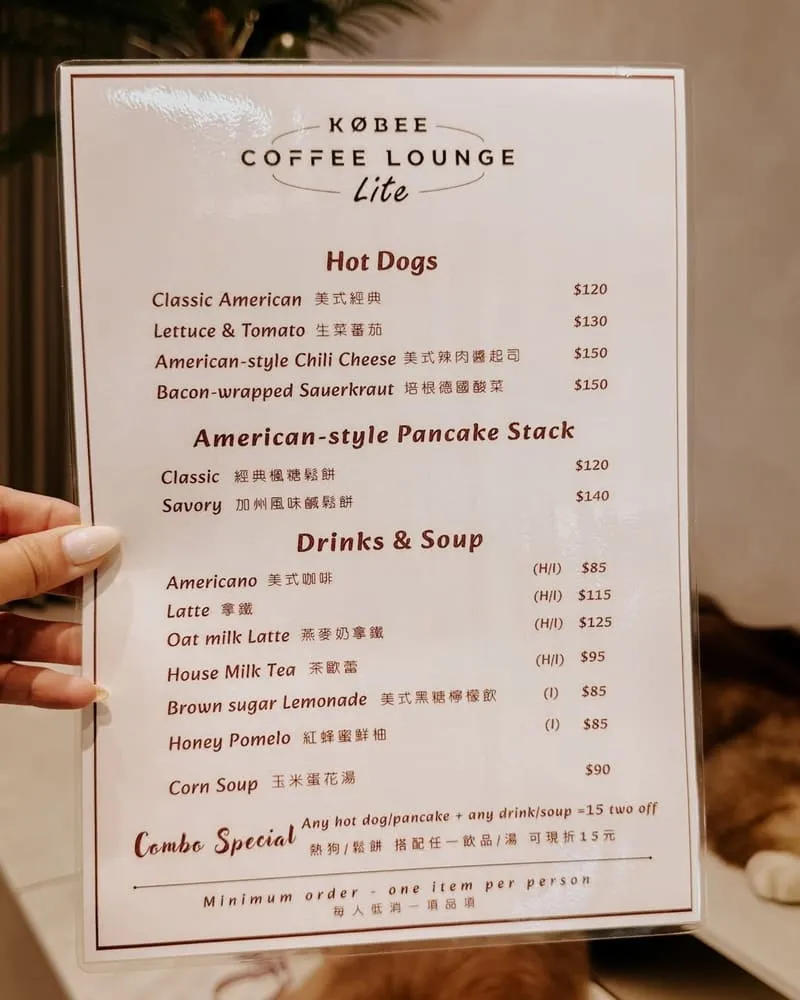 KØBEE
COFFEE LOUNGE
Lite
Hot Dogs
Classic American 美式經典 $120
Lettuce & Tomato 生菜蕃茄 $130
American-style Chili Cheese 美式辣肉醬起司 $150
Bacon-wrapped Sauerkraut 培根德國酸菜 $150
American-style Pancake Stack
Classic 經典楓糖鬆餅 $120
Savory 加州風味鹹鬆餅 $140
Drinks & Soup
Americano 美式咖啡 (H/I) $85
Latte 拿鐵 (H/I) $115
Oat milk Latte 燕麥奶拿鐵 (H/I) $125
House Milk Tea 茶歐蕾 (H/I) $95
Brown sugar Lemonade 美式黑糖檸檬飲 (I) $85
Honey Pomelo 紅蜂蜜鮮柚 (I) $85
Corn Soup 玉米蛋花湯 $90
Combo Special
Any hot dog/pancake + any drink/soup =15 two off
熱狗/鬆餅 搭配任一飲品/湯 可現折15元
Minimum order - one item per person
每人低消一項品項